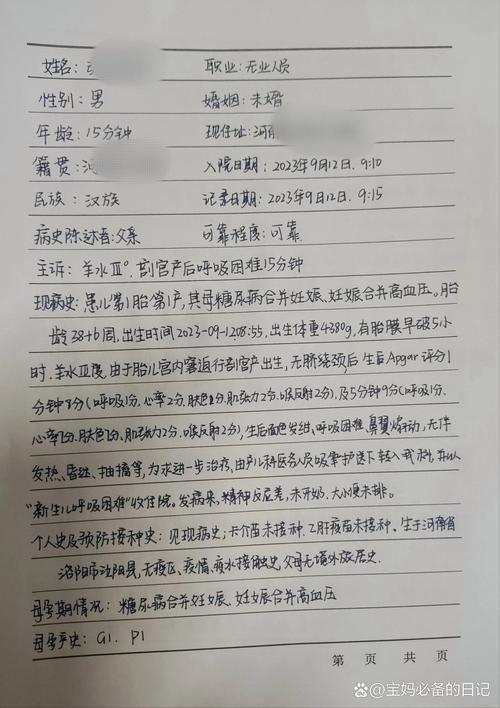 姓名: 职业:无业人员
性别: 男 婚姻: 未婚
年龄: 15分钟 现住址:河南
籍贯: 河 入院日期: 2023年9月12日. 9:10
民族: 汉族 记录日期: 2023年9月12日. 9:15
病史陈述者:父亲 可靠程度: 可靠.
主诉: 羊水Ⅲ°, 剖宫产后呼吸困难15分钟
现病史: 患儿第1胎第1产, 其母糖尿病合并妊娠、妊娠合并高血压。胎
龄38+6周, 出生时间2023-09-1208:55, 出生体重4380g, 有胎膜早破5小
时, 羊水Ⅲ度, 由于胎儿宫内窘迫行剖宫产出生, 无脐绕颈后, 生后Apgar评分1
分钟8分(呼吸1分, 心率2分, 肤色1分, 肌张力2分, 喉反射2分), 及5分钟9分(呼吸1分,
心率2分, 肤色2分, 肌张力2分, 喉反射2分), 生后面色发绀、呼吸困难、鼻翼煽动, 无伴
发热、昏迷、抽搐等, 为求进一步治疗, 由产儿科医务人员吸氧护送下转入我科, 并以
"新生儿呼吸困难"收住院。发病来, 精神反应差, 未开奶、大小便未排。
个人史及预防接种史: 见现病史; 卡介苗未接种. 乙肝疫苗未接种. 生于河南省
洛阳市汝阳县, 无疫区、疫情、疫水接触史, 父母无境外旅居史.
母孕期情况: 糖尿病合并妊娠、妊娠合并高血压
母孕产史: G1. P1
第 页 共 页
@宝妈必备的日记